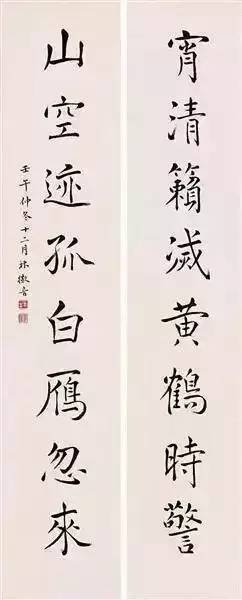 宵清籟滅黃鶴時警
山空迹孤白鴈忽來
壬午仲冬十二月林徽音